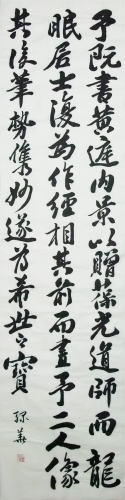 予既書黃庭內景以贈葆光道師而龍
眠居士復為作經相其前而畫予二人像
其後筆勢雋妙遂為希世之寶